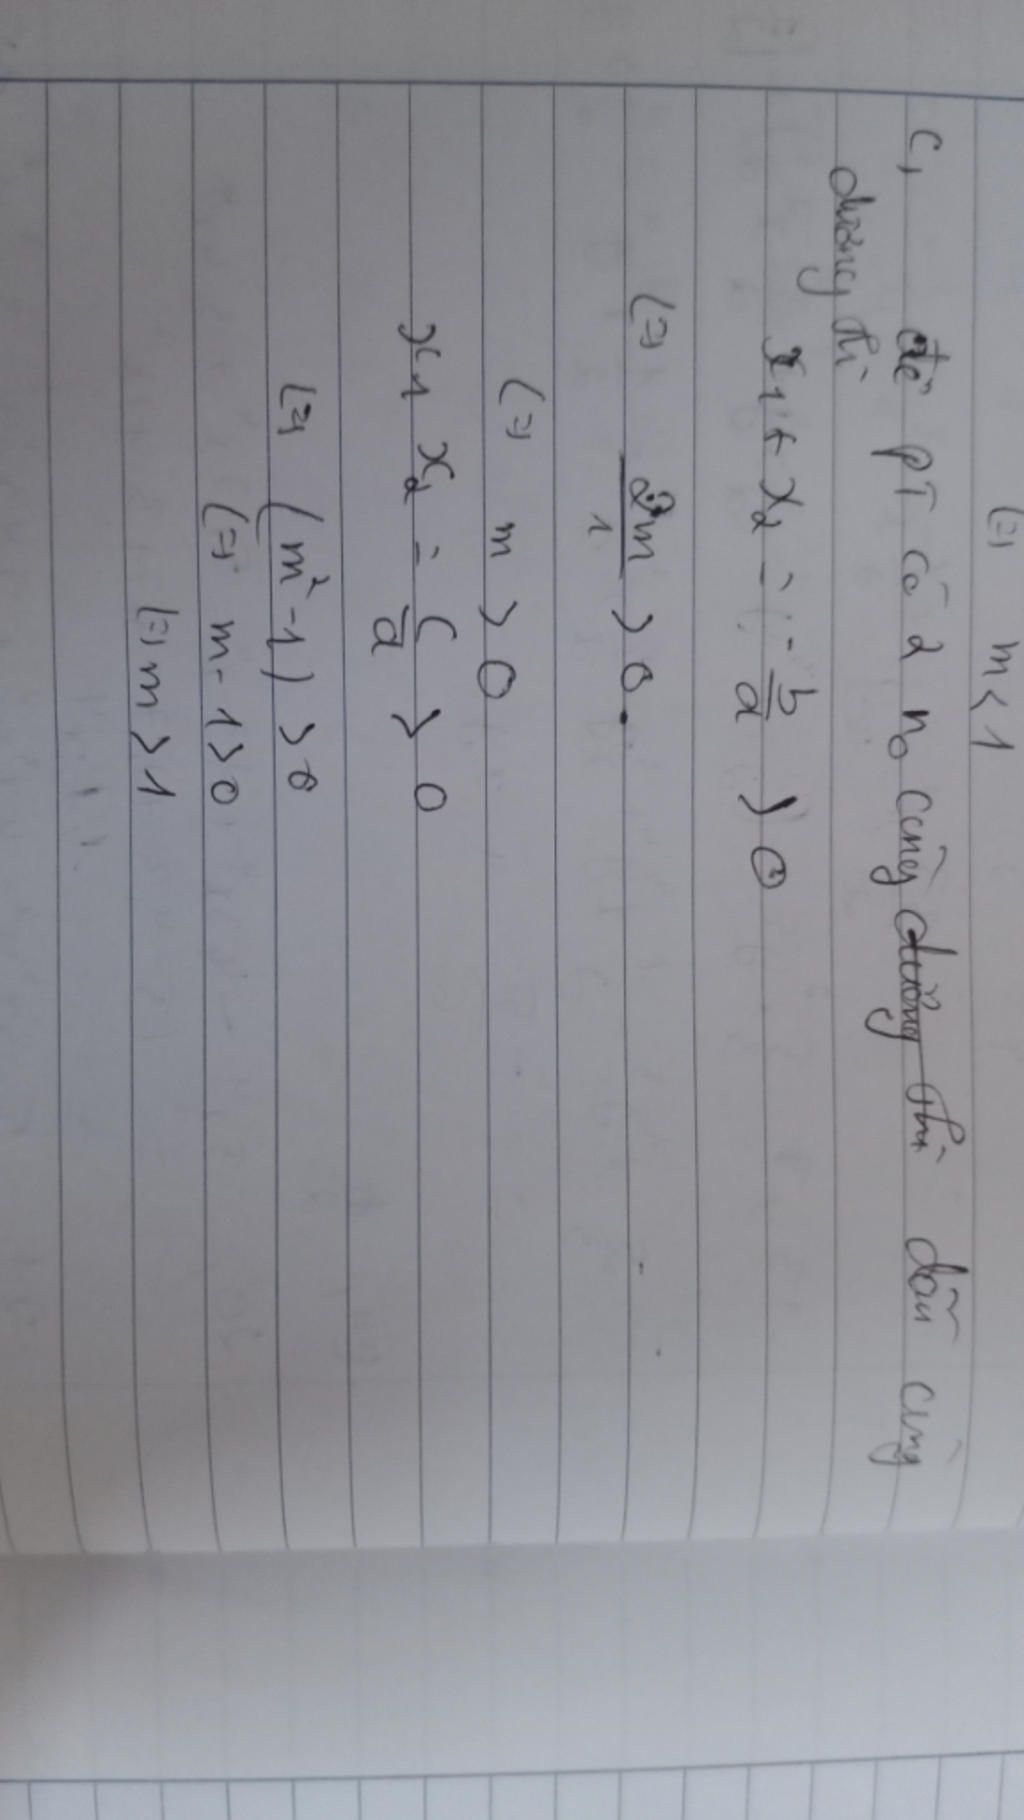 (=) m < 1
c, để pT có 2 no cùng dương thì dấu cùng
dương thì
x1 + x2 = - b/a > 0
(=) 2m/1 > 0.
(=) m > 0
x1 x2 = c/a > 0
(=) (m² - 1) > 0
(=) m - 1 > 0
(=) m > 1